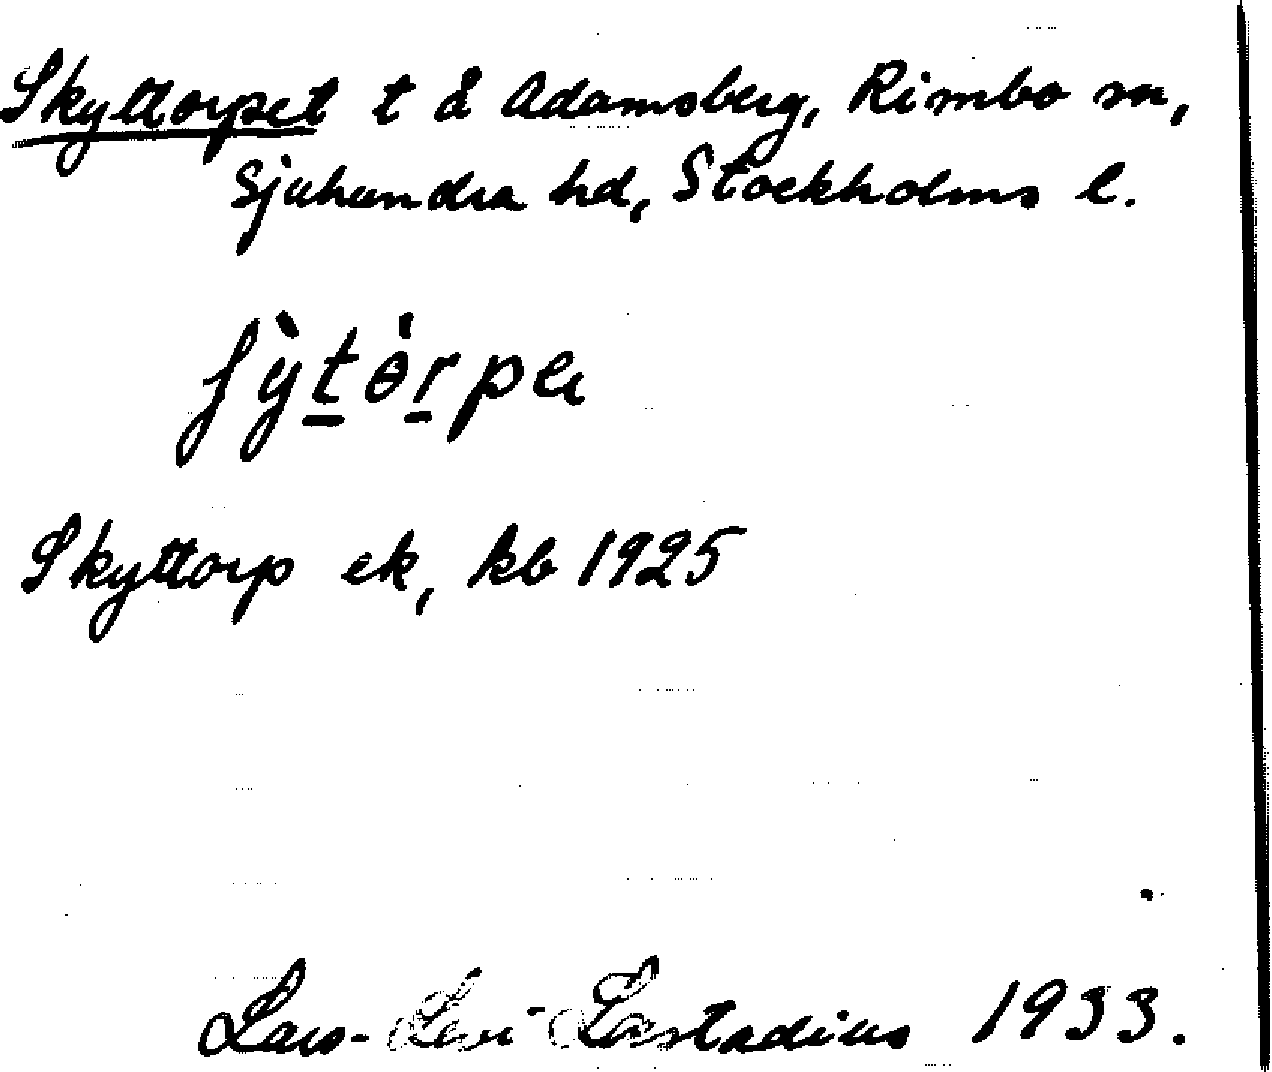 Skyttorpet t å Adamsberg, Rimbo sn,
Sjuhundra hd, Stockholms l.
ʃỳtɵ̀rpɐ
Skyttorp ek, kb 1925
Lars-Levi Læstadius 1933.